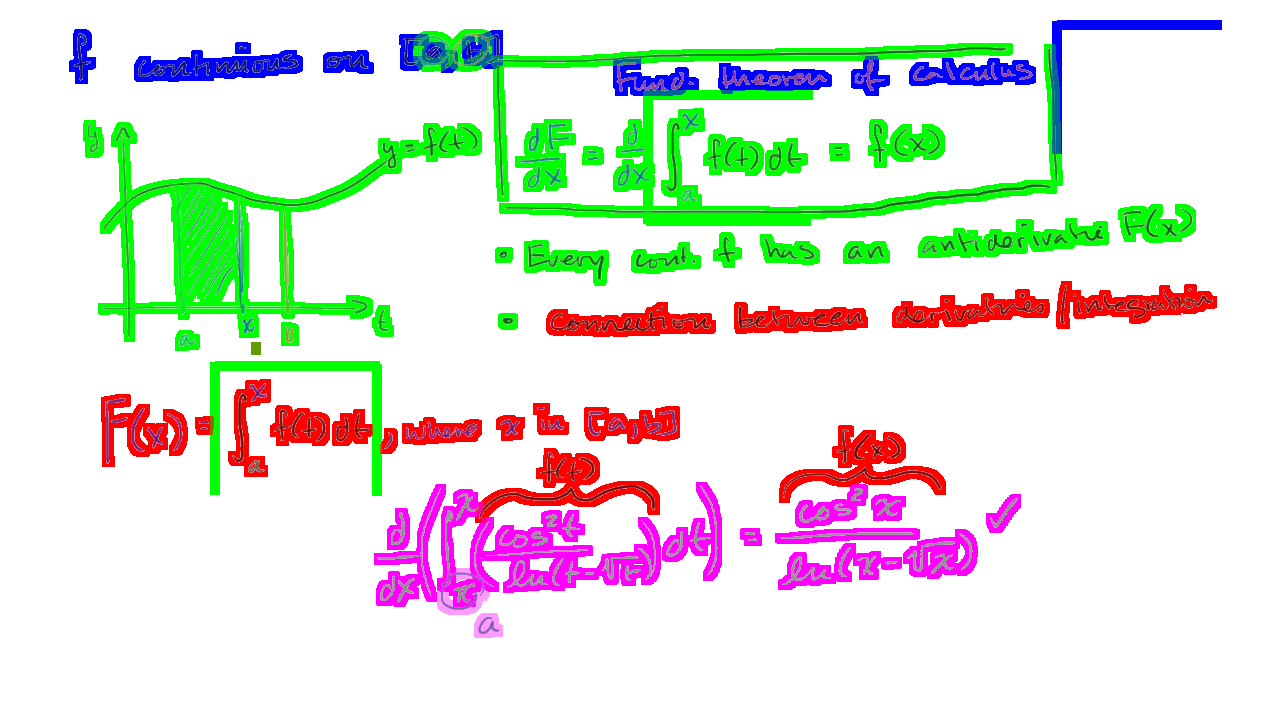 f continuous on [a,b]
Fund. theorem of calculus
y
y=f(t)
dF/dx = d/dx ∫_a^x f(t)dt = f(x)
a x b t
• Every cont. f has an antiderivative F(x)
• Connection between derivatives/integration
F(x) = ∫_a^x f(t)dt, where x in [a,b]
f(t) f(x)
d/dx (∫_π^x (cos²t / ln(t-√t)) dt) = cos²x / ln(x-√x) ✓
a